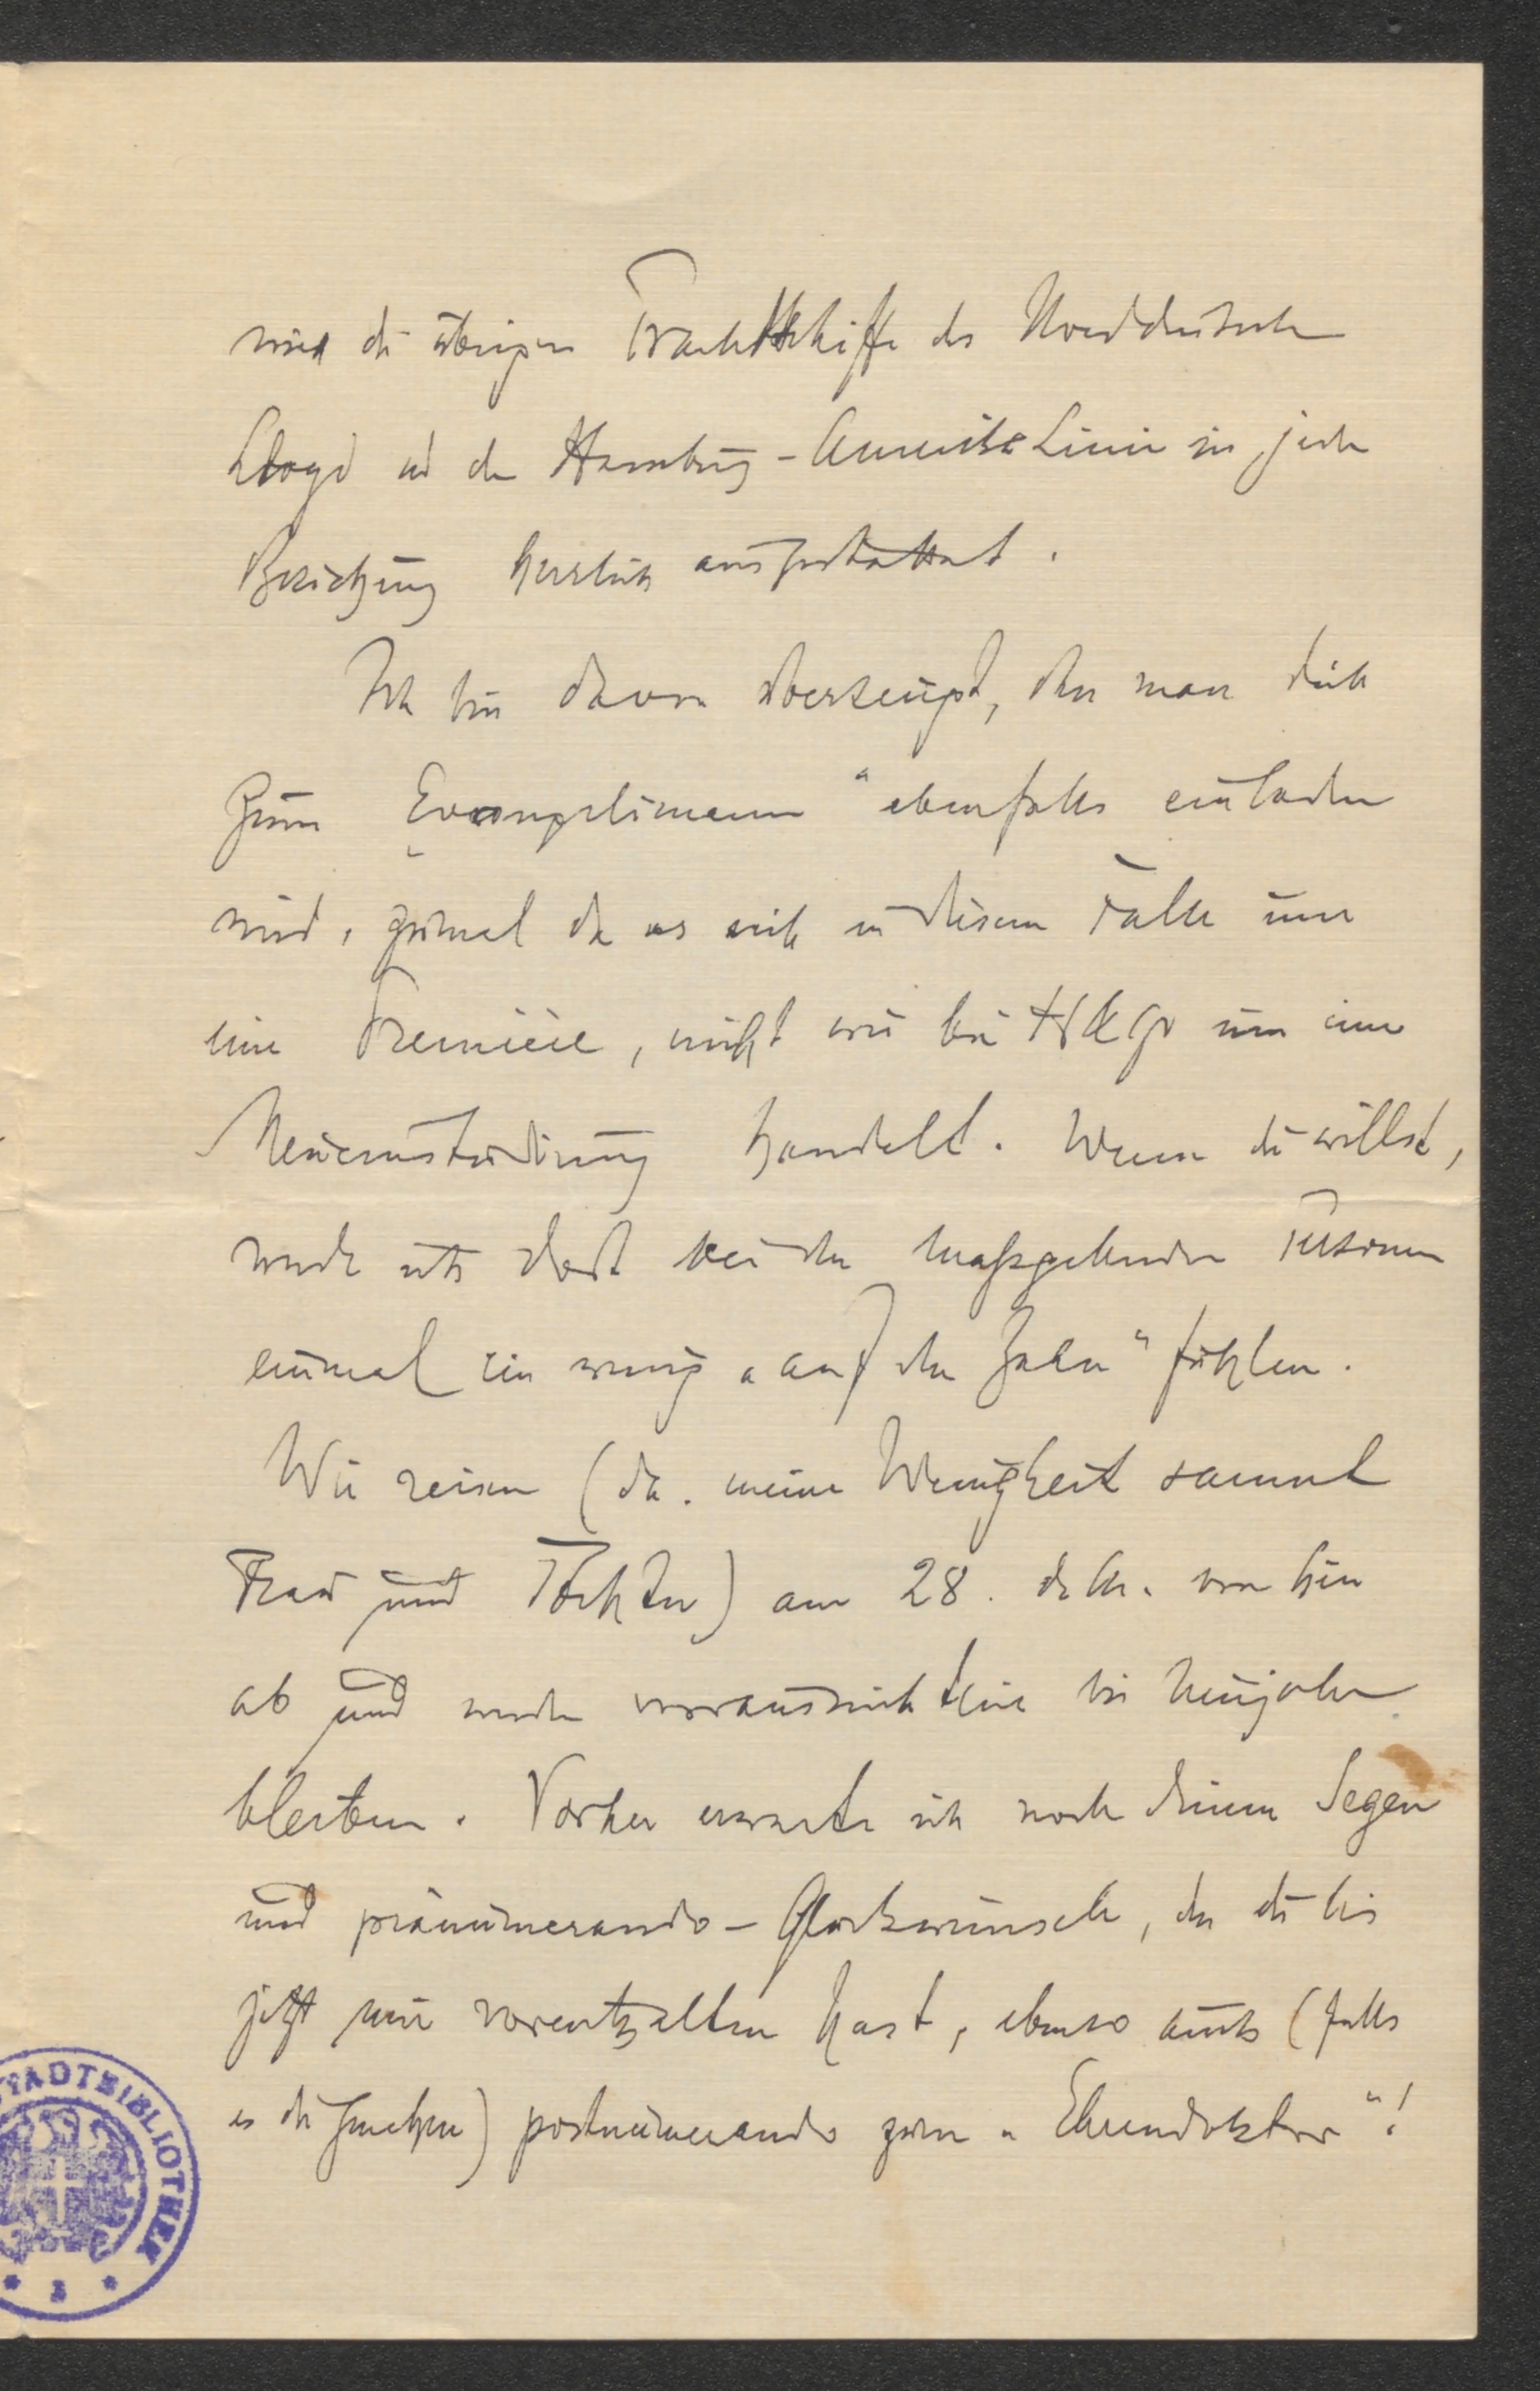 wie die übrigen Prachtschiffe des Norddeutschen
Lloyd und der Hamburg-Amerika Linie in jeder
Beziehung herrlich ausgestattet.
Ich bin davon überzeugt, dass man dich
zum „Evangelimann“ ebenfalls einladen
wird, zumal da es sich in diesem Falle um
eine Première, nicht wie bei um eine
Neueinstudirung handelt. Wenn du willst,
werde ich dort bei den maßgebenden Personen
einmal ein wenig „auf den Zahn“ fühlen.
Wir reisen (d.h. meine Wenigkeit sammt
Frau und Tochter) am 28. von hier
ab und werden voraussichtlich bis Neujahr
bleiben. Vorher erwarte ich noch deinen Segen
und pränumerando-Glückwunsch, den du bis
jetzt mir vorenthalten hast, ebenso auch (falls
es dir genehm) postnumerando zum „Ehrendoktor“!
STADTBIBLIOTHEK